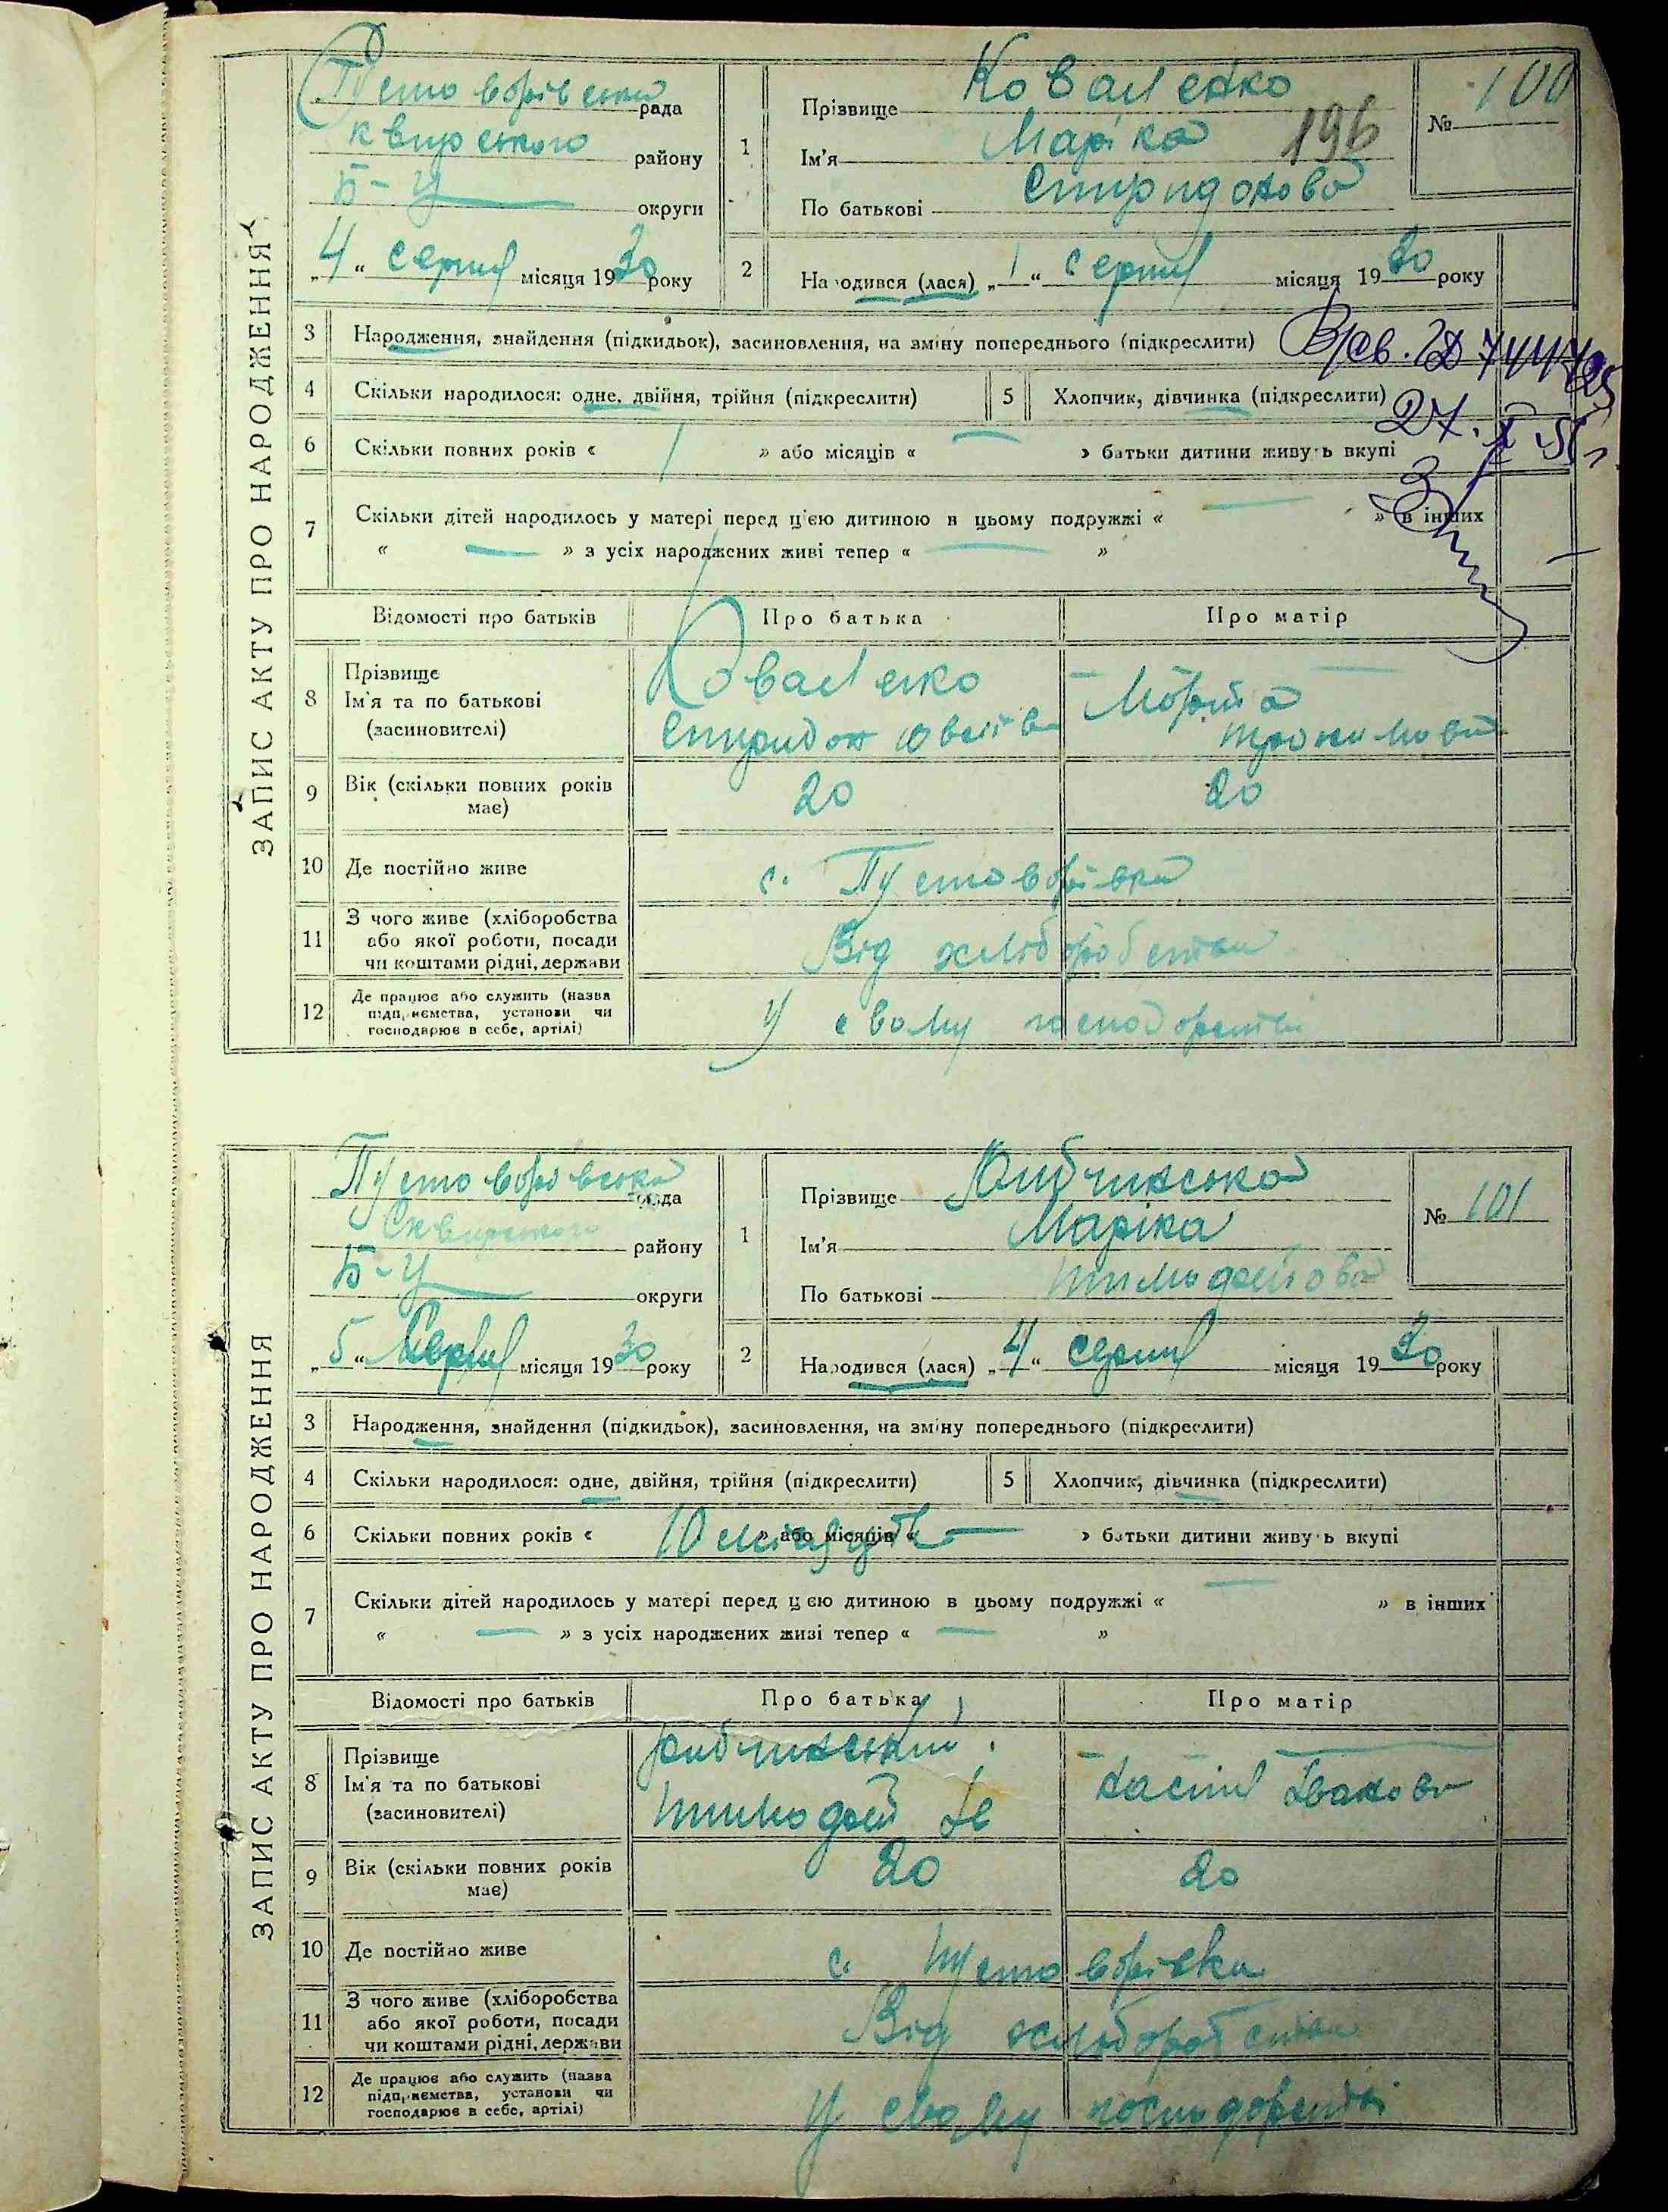 ЗАПИС АКТУ ПРО НАРОДЖЕННЯ
Пустоворівська рада
Сквирського району
Б-Ц округи
„4“ серпня місяця 1930 року
1 Прізвище Коваленко
Ім'я Маріка 196
По батькові Спиридонова
№ 100
2 Народився (лася) „1“ серпня місяця 1930 року
3 Народження, знайдення (підкидьок), засиновлення, на зміну попереднього (підкреслити)
4 Скільки народилося: одне, двійня, трійня (підкреслити) 5 Хлопчик, дівчинка (підкреслити)
6 Скільки повних років « 1 » або місяців « — » батьки дитини живуть вкупі
7 Скільки дітей народилось у матері перед ц'єю дитиною в цьому подружжі « — » в інших
« — » з усіх народжених живі тепер « — »
Відомості про батьків Про батька Про матір
8 Прізвище
Ім'я та по батькові
(засиновителі)
Коваленко
Спиридон
9 Вік (скільки повних років має) 20 20
10 Де постійно живе с. Пустоворівка
11 З чого живе (хліборобства
або якої роботи, посади
чи коштами рідні, держави
Від хліборобства
12 Де працює або служить (назва
підприємства, установи чи
господарює в себе, артілі)
У свому господарстві
ЗАПИС АКТУ ПРО НАРОДЖЕННЯ
Пустоворівська рада
Сквирського району
Б-Ц округи
„5“ Серпня місяця 1930 року
1 Прізвище Рибчинська
Ім'я Маріка
По батькові Тимофейова
№ 101
2 Народився (лася) „4“ серпня місяця 1930 року
3 Народження, знайдення (підкидьок), засиновлення, на зміну попереднього (підкреслити)
4 Скільки народилося: одне, двійня, трійня (підкреслити) 5 Хлопчик, дівчинка (підкреслити)
6 Скільки повних років « 10 місяців » або місяців « — » батьки дитини живуть вкупі
7 Скільки дітей народилось у матері перед цією дитиною в цьому подружжі « — » в інших
« — » з усіх народжених живі тепер « — »
Відомості про батьків Про батька Про матір
8 Прізвище
Ім'я та по батькові
(засиновителі)
Рибчинський
Тимофей Ів
Настя Іванова
9 Вік (скільки повних років має) 20 20
10 Де постійно живе с. Пустоворівка
11 З чого живе (хліборобства
або якої роботи, посади
чи коштами рідні, держави
Від хліборобства
12 Де працює або служить (назва
підприємства, установи чи
господарює в себе, артілі)
У свому господарстві